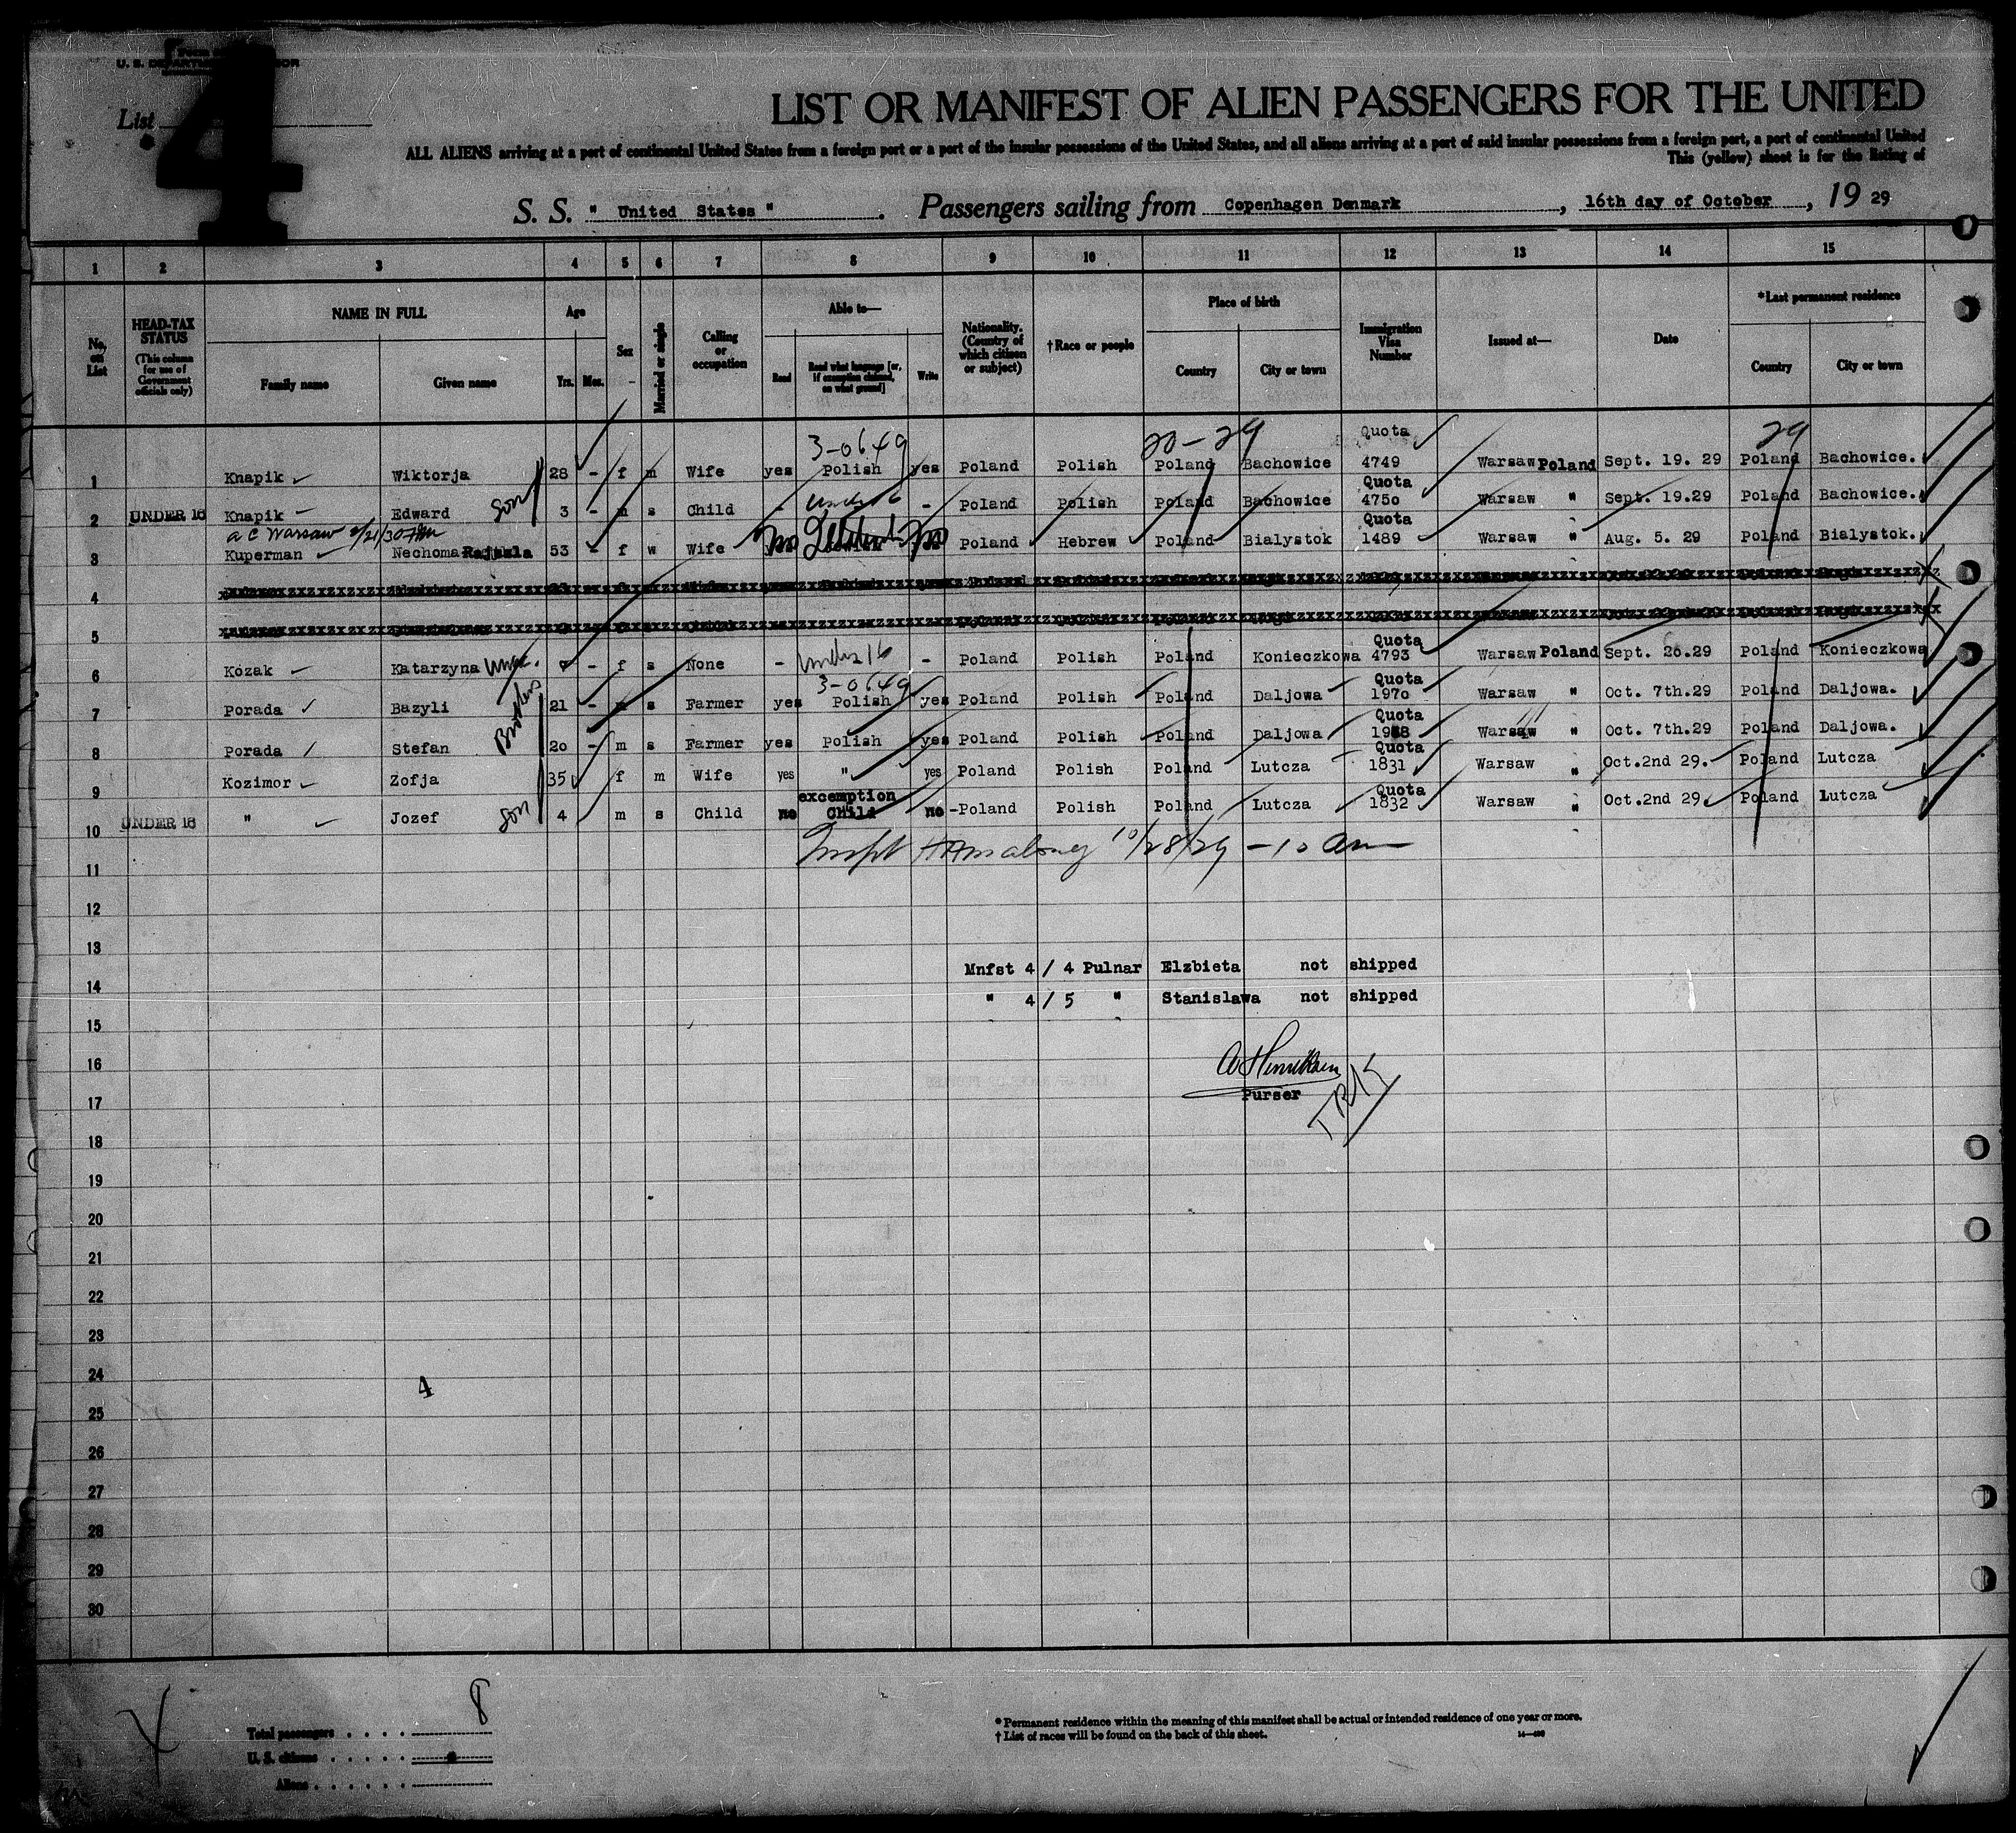 U. S. DE
List
4
LIST OR MANIFEST OF ALIEN PASSENGERS FOR THE UNITED
ALL ALIENS arriving at a port of continental United States from a foreign port or a port of the insular possessions of the United States, and all aliens arriving at a port of said insular possessions from a foreign port, a port of continental United
This (yellow) sheet is for the listing of
S. S. " United States " . Passengers sailing from Copenhagen Denmark , 16th day of October , 19 29
1 2 3 4 5 6 7 8 9 10 11 12 13 14 15
No. on List
HEAD-TAX STATUS (This column for use of Government officials only)
NAME IN FULL
Family name Given name
Age
Yrs. Mos.
Sex
Married or single
Calling or occupation
Able to—
Read Read what language [or, if exemption claimed, on what ground] Write
Nationality. (Country of which citizen or subject)
†Race or people
Place of birth
Country City or town
Immigration Visa Number
Issued at—
Date
*Last permanent residence
Country City or town
3-0649 20-29 Quota 29
1 Knapik Wiktorja 28 - f m Wife yes Polish yes Poland Polish Poland Bachowice 4749 Warsaw Poland Sept. 19. 29 Poland Bachowice.
Quota
2 UNDER 16 Knapik Edward son 3 - m s Child - under 16 - Poland Polish Poland Bachowice 4750 Warsaw " Sept. 19.29 Poland Bachowice.
Quota
3 Kuperman Nechoma 53 - f w Wife no no Poland Hebrew Poland Bialystok 1489 Warsaw " Aug. 5. 29 Poland Bialystok.
4
5
Quota
6 Kozak Katarzyna - f s None - under 16 - Poland Polish Poland Konieczkowa 4793 Warsaw Poland Sept. 26.29 Poland Konieczkowa
3-0649 Quota
7 Porada Bazyli Brothers 21 - m s Farmer yes Polish yes Poland Polish Poland Daljowa 1970 Warsaw " Oct. 7th.29 Poland Daljowa.
Quota
8 Porada Stefan 20 - m s Farmer yes Polish yes Poland Polish Poland Daljowa Warsaw " Oct. 7th.29 Poland Daljowa.
Quota
9 Kozimor Zofja 35 f m Wife yes " yes Poland Polish Poland Lutcza 1831 Warsaw " Oct.2nd 29. Poland Lutcza
excemption Quota
10 UNDER 16 " Jozef son 4 m s Child no Child no - Poland Polish Poland Lutcza 1832 Warsaw " Oct.2nd 29. Poland Lutcza
11 10/28/29 - 10 am
12
13
Mnfst 4 / 4 Pulnar Elzbieta not shipped
14
" 4 / 5 " Stanislawa not shipped
15
16
Purser
17
18
19
20
21
22
23
24
4
25
26
27
28
29
30
Total passengers . . . . . 8
U. S. citizens . . . . .
Aliens . . . . . .
* Permanent residence within the meaning of this manifest shall be actual or intended residence of one year or more.
† List of races will be found on the back of this sheet.